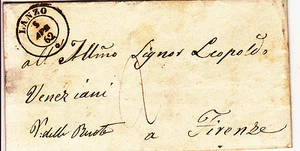 LANZO
5
62
all. Illmo Signor Leopoldo
Veneziani
V. delle Ruote
a Firenze